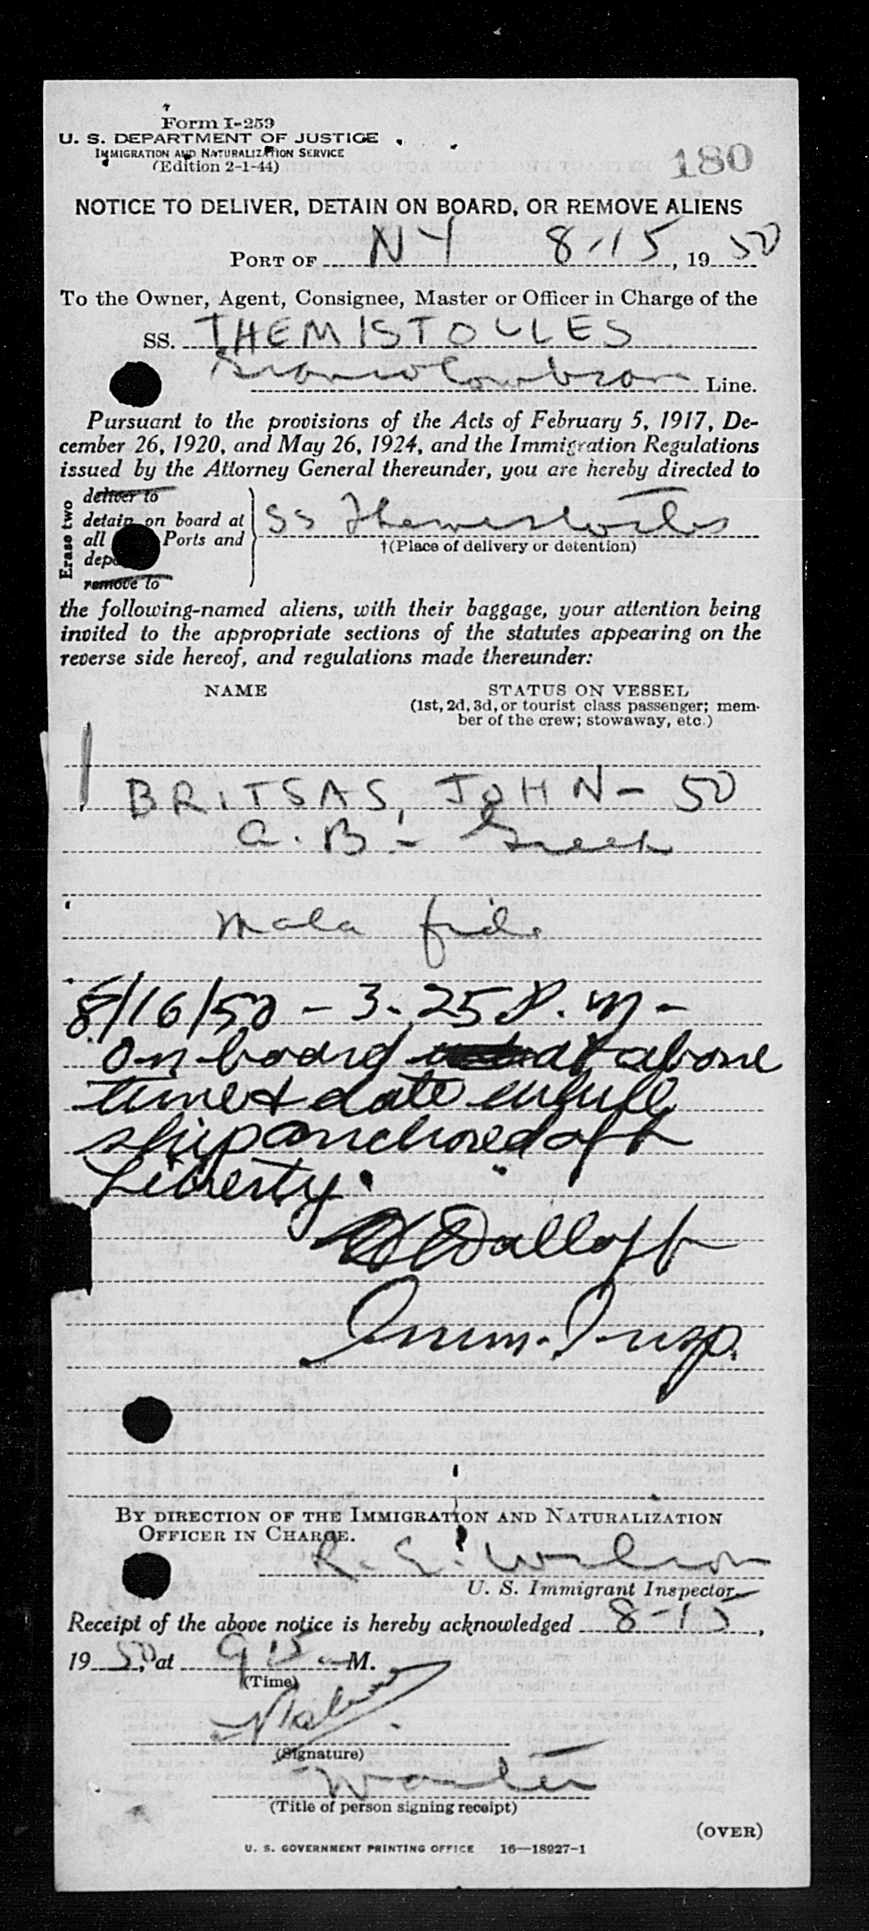 Form I-259
U. S. DEPARTMENT OF JUSTICE
IMMIGRATION AND NATURALIZATION SERVICE
(Edition 2-1-44)
180
NOTICE TO DELIVER, DETAIN ON BOARD, OR REMOVE ALIENS
PORT OF NY 8-15, 1950
To the Owner, Agent, Consignee, Master or Officer in Charge of the
SS. THEMISTOCLES
Line.
Pursuant to the provisions of the Acts of February 5, 1917, De-
cember 26, 1920, and May 26, 1924, and the Immigration Regulations
issued by the Attorney General thereunder, you are hereby directed to
Erase two
deliver to
detain on board at
all Ports and
remove to
SS Themistocles
†(Place of delivery or detention)
the following-named aliens, with their baggage, your attention being
invited to the appropriate sections of the statutes appearing on the
reverse side hereof, and regulations made thereunder:
NAME STATUS ON VESSEL
(1st, 2d, 3d, or tourist class passenger; mem-
ber of the crew; stowaway, etc.)
1 BRITSAS, JOHN - 50
A.B. - Greek
mala fide
8/16/50 - 3.25 P.M -
On board at above
time & date
ship anchored off
Liberty.
Imm. Insp.
BY DIRECTION OF THE IMMIGRATION AND NATURALIZATION
OFFICER IN CHARGE.
U. S. Immigrant Inspector
Receipt of the above notice is hereby acknowledged 8-15,
1950, at 915 a M.
(Time)
(Signature)
Master
(Title of person signing receipt)
(OVER)
U. S. GOVERNMENT PRINTING OFFICE 16—18927-1